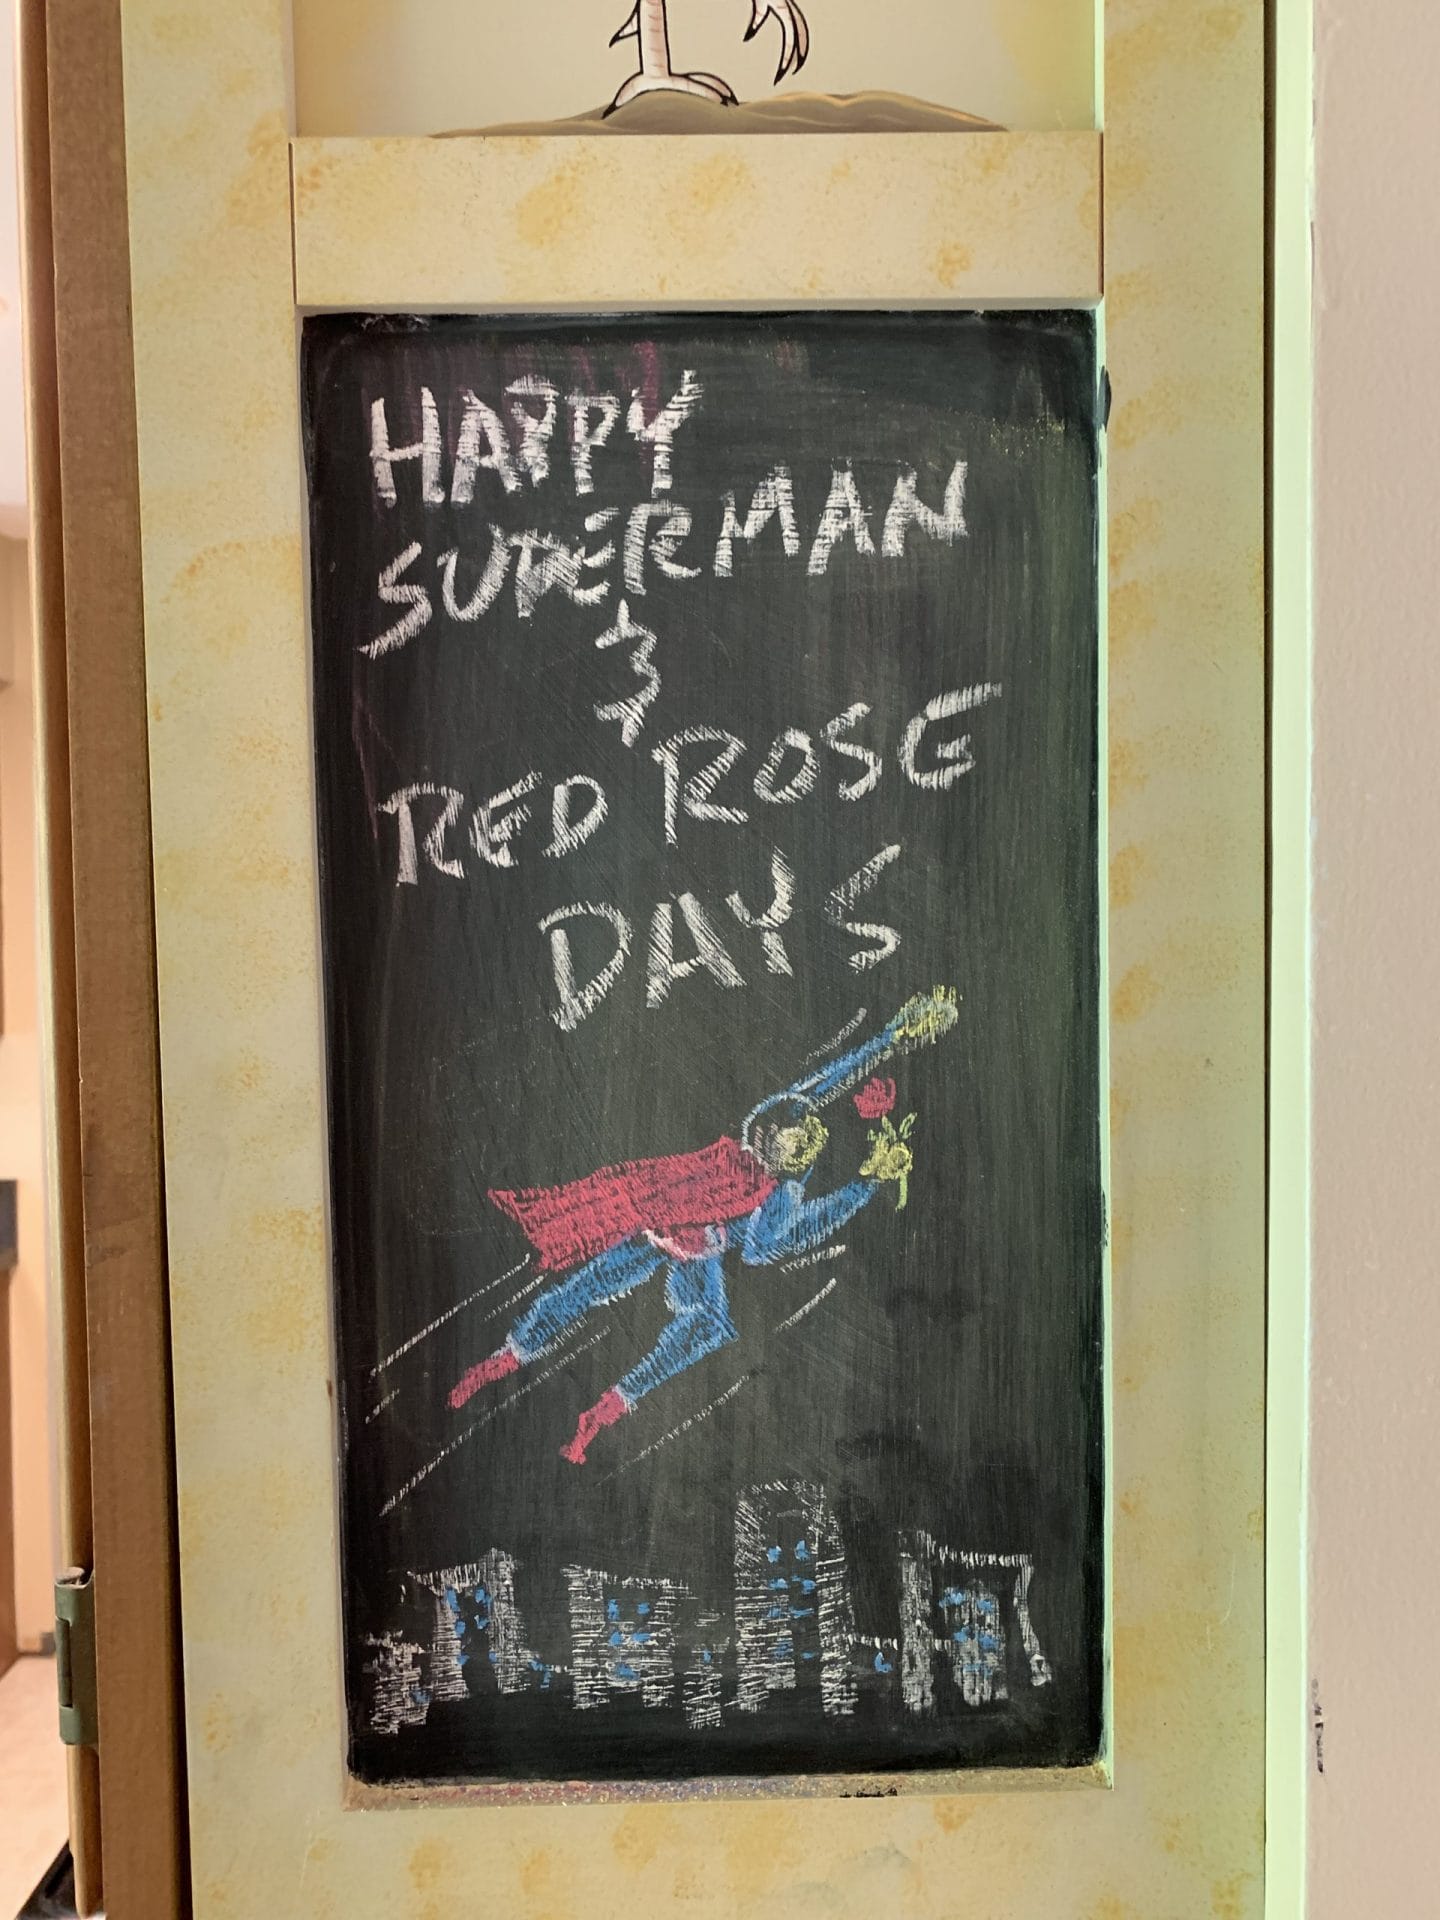 HAPPY
SUPERMAN
&
RED ROSE
DAYS